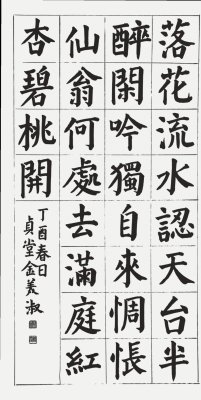 落花流水認天台半
醉閑吟獨自來惆悵
仙翁何處去滿庭紅
杏碧桃開
丁酉春日
貞堂金美淑